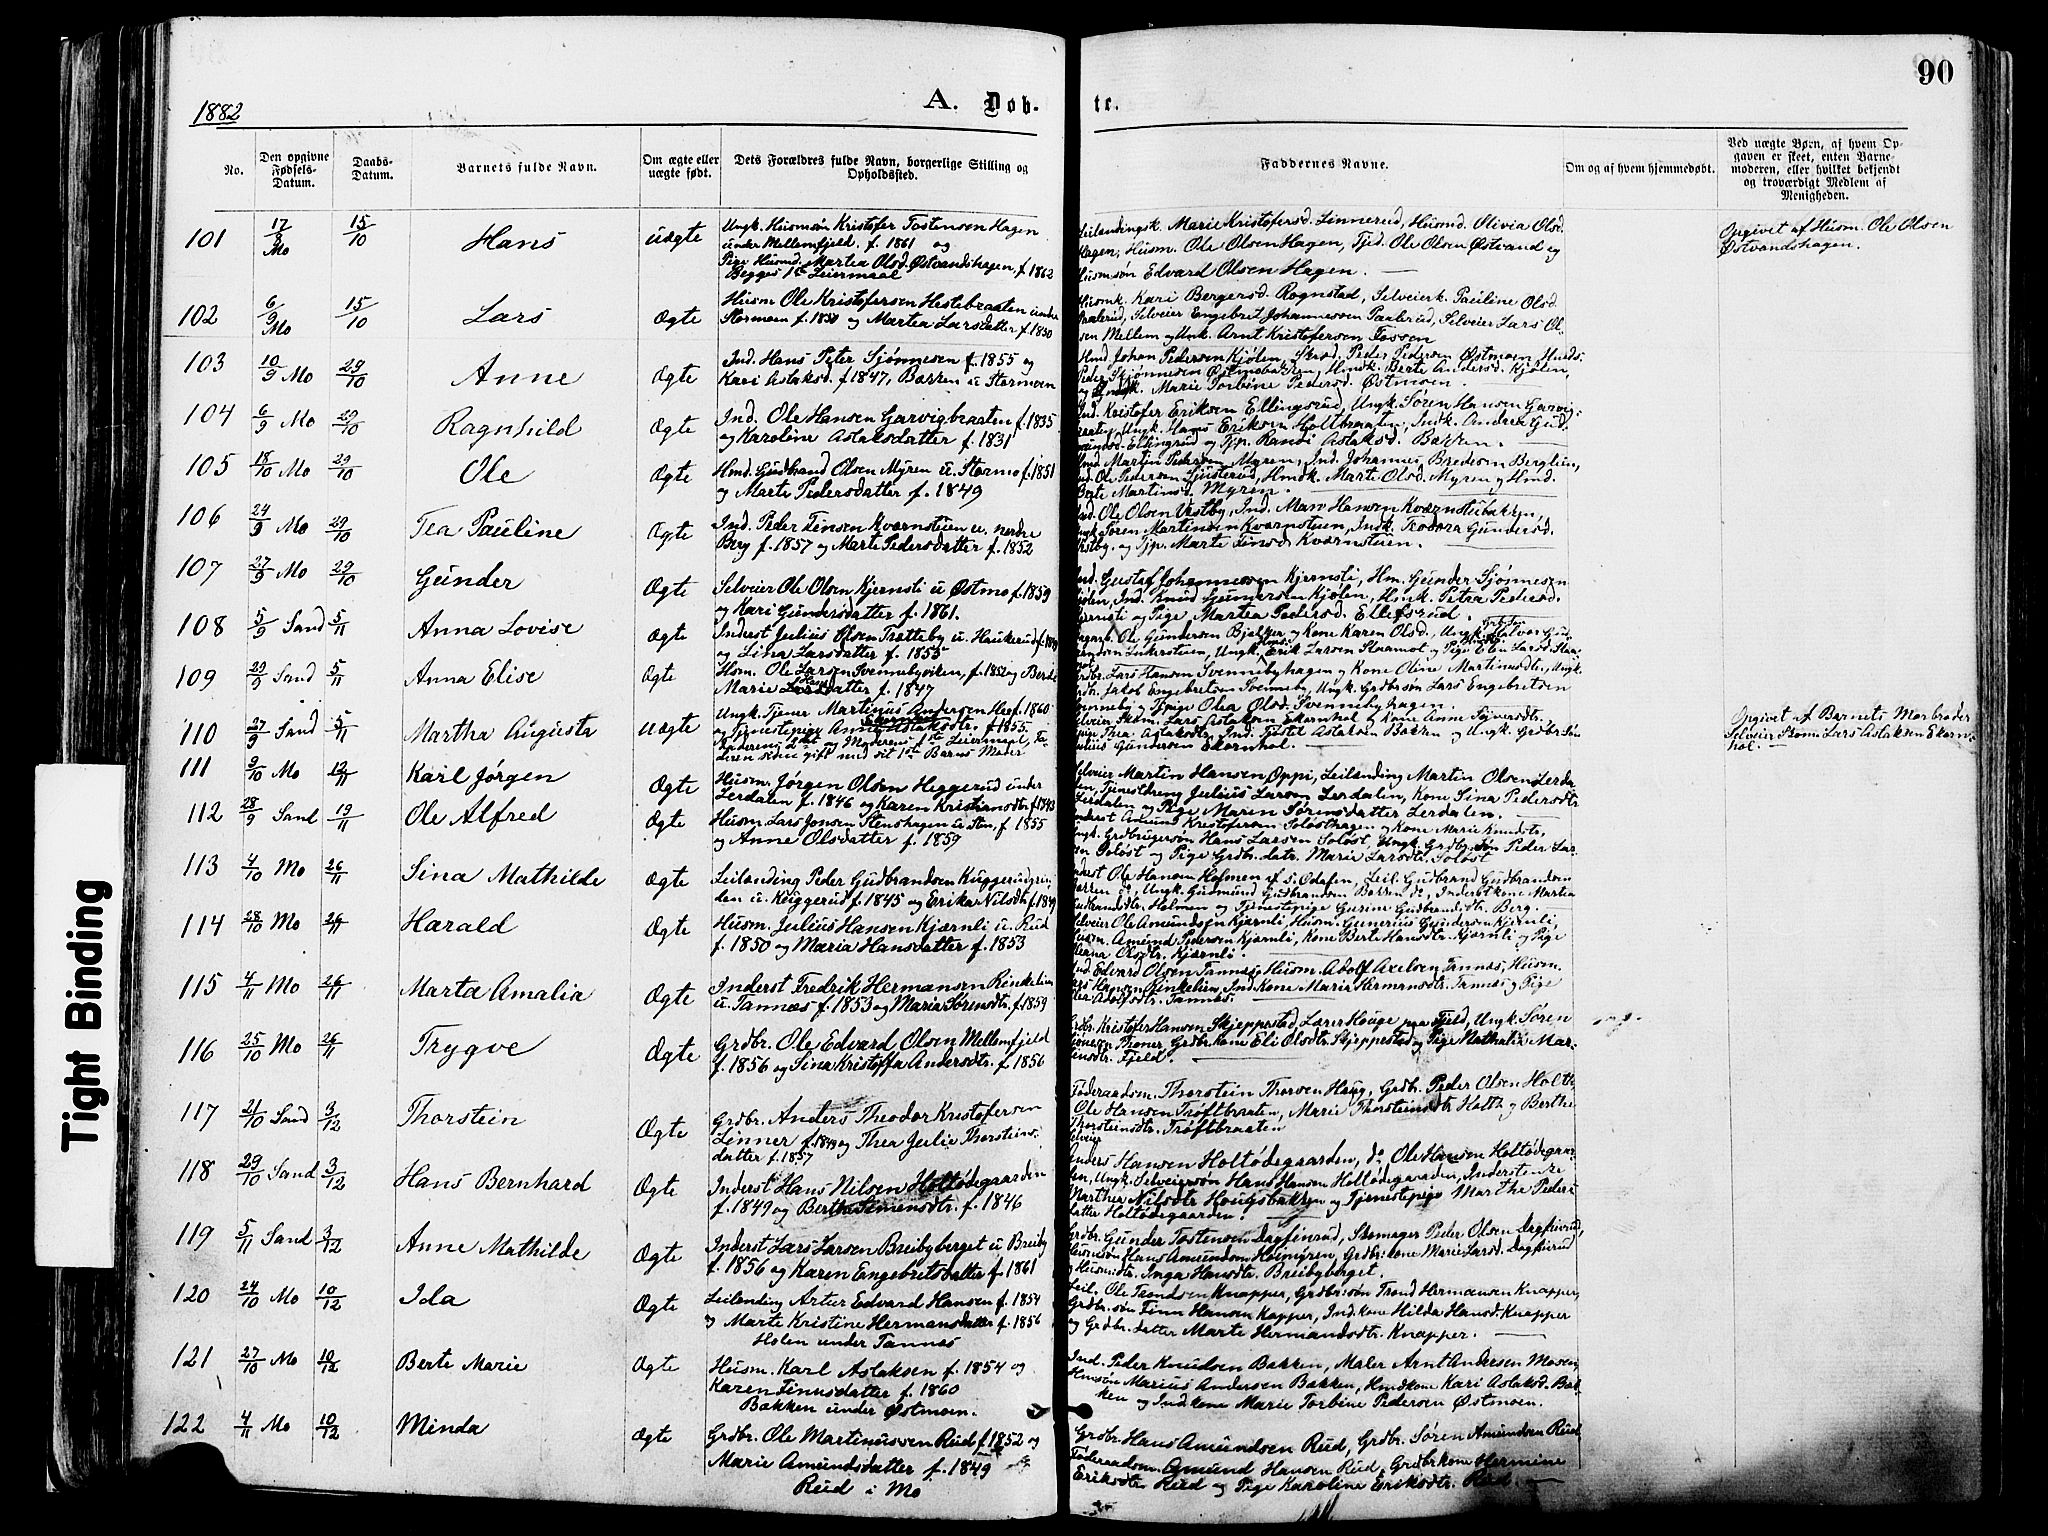 90
1882
A. Døb-
te.
No.
Den opgivne Fødsels-Datum.
Daabs-Datum.
Barnets fulde Navn.
Om ægte eller uægte født.
Dets Forældres fulde Navn, borgerlige Stilling og Opholdssted.
Faddernes Navne.
Om og af hvem hjemmedøbt.
Ved uægte Børn, af hvem Opgaven er skeet, enten Barnemoderen, eller hvilket bekjendt og troværdigt Medlem af Menigheden.
101 17/8 Mo 15/10 Hans uægte
Ungk. Husmsøn Kristofer Tostensen Hagen
under Mellemfjeld. f. 1861 og
Pige Husmd. Martea Olsd. Østvandshagen, f. 1862
Begges 1ste Leiermaal
Leilandingsk. Marie Kristofersd. Linnerud, Husmd. Olivia Olsd.
Hagen, Husm. Ole Olsen Hagen, Tjd. Ole Olsen Østvand og
Husmsøn Edvard Olsen Hagen.
Opgivet af Husm. Ole Olsen
Østvandshagen.
102 6/9 Mo 15/10 Lars Ægte
Husm Ole Kristofersen Hestebraaten under
Stormoen f. 1850 og Martea Larsdatter f. 1850
Husmk. Kari Bergersd. Rognstad, Selveierk. Pauline Olsd.
Paalerud, Selveier Engebret Johannessen Paalerud, Selveier Lars Ol-
sen Mellem og Ungk. Arnt Kristofersen Fossen
103 10/9 Mo 29/10 Anne Ægte
Ind. Hans Peter Sjønnesen f. 1855 og
Kari Aslaksd. f 1847, Bakken u Stormoen
Hmd Johan Pedersen Kjølen, Skræd. Peder Pedersen Østmoen, Hmds.
Peder Skjønnesen Østmobakken, Hmdk. Berte Andersd. Kjølen,
Marie Torbine Pedersd. Østmoen.
104 6/9 Mo 29/10 Ragnhild Ægte
Ind. Ole Hansen Garvigbraaten f. 1835
og Karoline Aslaksdatter f. 1831
Ind. Kristofer Eriksen Ellingsrud, Ungk. Søren Hansen Garvig-
braaten, Ungk. Hans Eriksen Holtbraaten, Indk. Andrea Gud-
Ellingrud og Pp. Randi Aslaksd. Bakken.
105 18/10 Mo 29/10 Ole Ægte
Hmd. Gudbrand Olsen Myren u. Stormo f. 1851
og Marte Pedersdatter f. 1849
Hmd Martin Pedersen Myren, Ind. Johannes Bredesen Berglien,
Ind. Ole Pedersen Ljusterud, Hmdk. Marte Olsd. Myren og Hmd.
Berte Martinsd. Myren.
106 24/9 Mo 29/10 Tea Pauline Ægte
Ind. Peder Finsen Kværnstuen u. nordre
Berg f. 1857 og Marte Pedersdatter f. 1852
Ind. Ole Olsen Vestby, Ind. Hans Hansen Kværnstubakken,
Ungk. Søren Martinsen Kværnstuen, Indk. Teodora Gundersd.
Vestby. og Pp. Marte Finsd. Kværnstuen.
107 27/9 Mo 29/10 Gunder Ægte
Selveier Ole Olsen Kjernsli u Østmo f. 1859
og Kari Gundersdatter f. 1861.
Ind. Gustaf Johannessen Kjernsli, Hm. Gunder Sjønnesen
Kjølen, Ind. Knud Gundersen Kjølen, Hmk. Petra Pedersd.
Kjernsli og Pige Martea Pedersd. Ellefsrud.
108 5/9 Sand 5/11 Anna Lovise Ægte
Inderst Julius Olsen Trætteby u. Haukerud
og Lina Larsdatter f. 1855
Ole Gundersen Bjakker og Kone Karen Olsd., Ungk. Halvor Gun-
dersen Lukrastuen, Ungk. Erik Larsen Staamot og Pige Elen Larsd.
109 29/9 Sand 5/11 Anna Elise Ægte
Hsm. Ole Larsen Svennebyviken, f. 1852 og Berte
Marie Larsdatter f. 1847
Grdbr. Lars Hansen Svennebyhagen og Kone Oline Martinusdtr., Ungk.
Jakob Engebretsen Svenneby, Ungk. Grdbrsøn Lars Engebretsen
Svenneby og Pige Olea Olsd. Svennebyhagen.
110 27/9 Sand 5/11 Martha Augusta uægte
Ungk. Tjener Martinus Andersen Hee f. 1860
og Tjenestepige Anne Aslaksdtr. f 1855.
Faderens 2det og Moderens 1ste Leiermaal, Fa-
deren siden gift med sit 1ste Barns Moder.
Selveier Skm. Lars Aslaksen Ekornhol og Kone Anne Seiversdtr.,
Pige Thea Aslaksdtr., Ind. Tostel Aslaksen Bakken og Ungk. Grdbr.søn
Julius Gundersen Ekornhol.
Opgivet af Barnets Morbroder
Selveier Skom. Lars Aslaksen Ekorn-
hol.
111 9/10 Mo 12/11 Karl Jørgen Ægte
Husm. Jørgen Olsen Heggerud under
Lerdalen f. 1846 og Karen Kristiansdtr. f. 1843
Selveier Martin Hansen Oppi, Leilanding Martin Olsen Lerda-
len, Tjenestdreng Julius Larsen Lerdalen, Kone Sina Pedersdtr
Lerdalen og Pige Maren Sørensdatter Lerdalen.
112 28/9 Sand 19/11 Ole Alfred Ægte
Husm. Lars Jonsen Stenshagen u. Sten, f. 1855
og Anne Olsdatter f. 1859
Inderst Amund Kristofersen Soløsthagen og Kone Marie Knudsdtr,
Ungk. Grdbrugersøn Hans Larsen Soløst, Ungk. Grdbr. søn Peder Lar-
sen Soløst og Pige Grdbr. datr. Marie Larsdtr. Soløst
113 4/10 Mo 26/11 Sina Mathilde Ægte
Leilanding Peder Gudbrandsen Kuggerudgren-
den u. Kuggerud f. 1845 og Erika Nilsdtr f. 1849
Inderst Ole Hansen Holmen af S. Odalen, Leil. Gudbrand Gudbrandsen
Bakken do, Ungk. Gudmund Gudbrandsen Bakken do, Inderst kone Martia
Gudbrandsdtr. Holmen og Tjenestepige Gurine Gudbrandsdtr. Berg.
114 28/10 Mo 26/11 Harald Ægte
Husm. Julius Hansen Kjærnli u. Rud
f. 1850 og Maria Hansdatter f. 1853
Selveier Ole Amundsen Kjærnli, Husm. Gunerius Gundersen Kjærnli,
Husm. Amund Pedersen Kjærnli, Kone Berte Hansdtr. Kjærnli og Pige
Olsdtr. Kjærnli.
115 4/11 Mo 26/11 Marta Amalia Ægte
Inderst Fredrik Hermansen Rinkelien
u. Tannæs f. 1853 og Maria Sørensdtr. f. 1859
Ind. Edvard Olsen Tannæs, Husm. Adolf Axelsen Tannæs, Husm.
Lars Hansen Rinkelien, Ind. Kone Maria Hermansdtr. Tannæs og Pige
Adolfsdtr. Tannæs.
116 25/10 Mo 26/11 Trygve Ægte
Grdbr. Ole Edvard Olsen Mellemfjeld
f. 1856 og Sina Kristoffa Andersdtr. f. 1856
Grdbr. Kristofer Hansen Skjeppestad, Lærer Houge paa Fjeld, Ungk. Søren
Tjener, Grdbr. kone Eli Olsdtr. Skjeppestad og Pige Nathalia Mar-
tinsdtr. Fjeld.
117 21/10 Sand 3/12 Thorstein Ægte
Grdbr. Anders Theodor Kristofersen
Linner f. 1849 og Thea Julie Thorsteins-
datter f. 1857
Føderaadsm. Thorstein Thorsen Haug, Grdbr. Peder Olsen Holth,
Ole Hansen Trøftbraaten, Marie Thorsteinsdtr Holth og Berthe
Thorsteinsdtr. Trøftbraaten
118 29/10 Sand 3/12 Hans Bernhard Ægte
Inderst Hans Nilsen Holtødegaarden
f. 1849 og Berthe Simensdtr. f. 1846
Selveier
Anders Hansen Holtødegaarden, do Ole Hansen Holtødegaar-
den, Ungk. Selveiersøn Hans Hansen Holtødegaarden, Inderst enke
Marthe Nilsdtr Hougsbakken og Tjenestepige Marthe Peders
datter Holtødegaarden.
119 5/11 Sand 3/12 Anne Mathilde Ægte
Inderst Lars Larsen Breibyberget u Breiby
f. 1856 og Karen Engebretsdatter f. 1861
Grdbr. Gunder Tostensen Dagfinrud, Skomager Peder Olsen Dagfinrud,
Husmsøn Hans Amundsen Holmyren, Grdbr. kone Marie Larsd. Dagfinrud
og Husmdtr. Inga Hansdtr. Breibyberget.
120 24/10 Mo 10/12 Ida Ægte
Leilending Artur Edvard Hansen f. 1854
og Marte Kristine Hermansdatter f. 1856
Holen under Tannæs
Leil. Ole Trondsen Knapper, Grdbr. søn Trond Hermansen Knapper,
Grdbr. søn Finn Hansen Kapper, Ind. kone Hilda Hansd. Knapper
og Grdbr. datter Marte Hermandsdtr. Knapper.
121 27/10 Mo 10/12 Berte Marie Ægte
Husm. Karl Aslaksen f. 1854 og
Karen Finusdatter f. 1860
Bakken under Østmoen.
Ind. Peder Knudsen Bakken, Maler Arnt Andersen Mosen,
Hmsøn Marius Andersen Bakken, Hmdkone Kari Aslaksd. Bak-
ken og Indkone Marie Torbine Pedersen Østmoen.
122 4/11 Mo 10/12 Minda Ægte
Grdbr. Ole Martinussen Rud f. 1852 og
Marie Amundsdatter f. 1849
Rud i Mo
Grdbr. Hans Amundsen Rud, Grdbr. Søren Amundsen Rud
Føderaadsm. Amund Hansen Rud, Grdbr. kone Hermine
Eriksdtr. Rud og Pige Karoline Eriksdtr. Rud.
Tight Binding